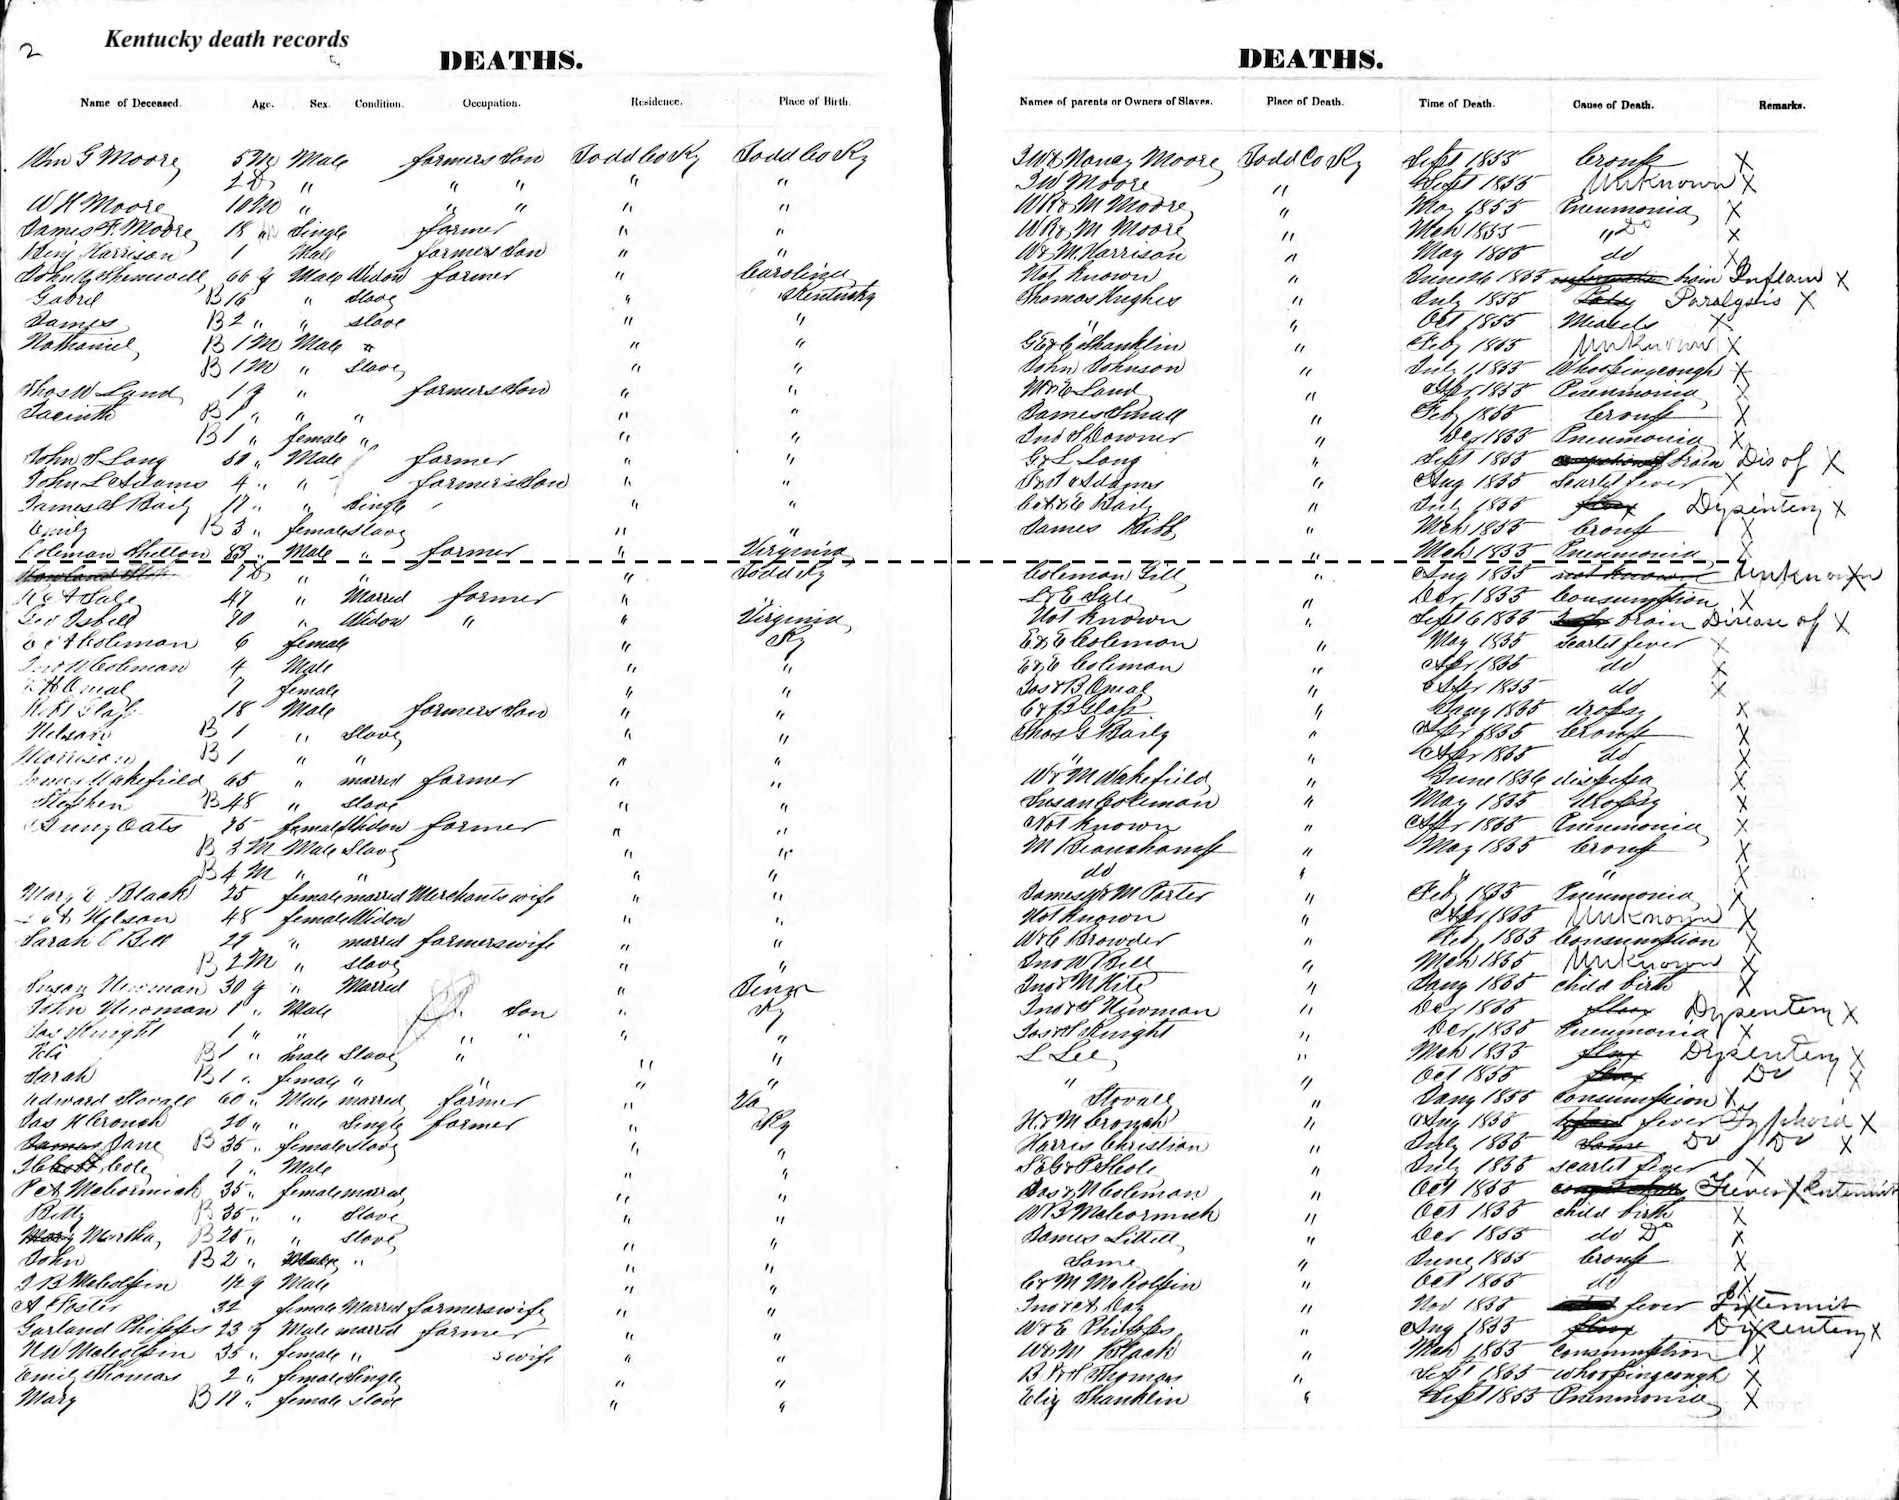 2
Kentucky death records
DEATHS.
DEATHS.
Name of Deceased. Age. Sex. Condition. Occupation. Residence. Place of Birth. Names of parents or Owners of Slaves. Place of Death. Time of Death. Cause of Death. Remarks.
Wm G Moore 5M Male farmers Son Todd Co Ky Todd Co Ky T W & Nancy Moore Todd Co Ky Sept 1855 Croup X
2D " " " " " T W Moore " Sept 1855 Unknown X
W H Moore 10M " " " " " W R & M Moore " May 1855 Pneumonia X
James F. Moore 18 Single farmer " " W R & M Moore " Mch 1855 " Do X
Benj Harrison 1 Male farmers Son " " W & M. Harrison " May 1855 do X
66 y Male Widow farmer " Carolina Not Known " June 26 1855 brain Inflam X
Gabril B 16 " Slave " Kentucky Thomas Hughes " July 1855 Palsy Paralysis X
James B 2 " " slave " " " " Oct 1855 Measels X
Nathaniel B 1M Male " " " G & C Shanklin " Feby 1855 Unknown X
B 1M " Slave " " John Johnson " July 1855 Whoopingcough X
Thos W Land 1 y " farmers Son " " W & E Land " Apr 1855 Pneumonia X
Jacinth B 1 " " " " " James Small " Feby 1855 Croup X
B 1 " female " " " Jno S Downer " Dec 1855 Pneumonia X
John S Long 50 " Male " farmer " " G & L Long " Sept 1855 brain Dis of X
John L Adams 4 " " farmers Son " " Adams " Aug 1855 Scarlet fever X
James S Baily 17 " Single " " " Baily " July 1855 flux Dysentery X
Emily B 3 " female slave " " James Bibb " Mch 1855 Croup X
Coleman Shelton 83 " Male " farmer " Virginia " Mch 1855 Pneumonia X
1D " " " Todd Ky Coleman Gill " Aug 1855 not known Unknown X
Sale 47 " Marred farmer " " L & E Sale " Dec 1855 Consumption X
Geo Isbell 70 " Widow " " Virginia Not Known " Sept 6 1855 brain Disease of X
Coleman 6 female " Ky E & E Coleman " May 1855 Scarlet fever X
Jno W Coleman 4 Male " " E & E Coleman " Apr 1855 do X
Oneal 7 female " " Jas & B Oneal " Apr 1855 do X
Glass 18 Male farmers Son " " C & B Glass " Jany 1855 dropsy X
Nelson B 1 " Slave " " Thos G Baily " Apr 1855 Croup X
Morrison B 1 " " " " " " Apr 1855 do X
Wakefield 65 " marred farmer " " W & M Wakefield " June 1856 X
Stephen B 48 " Slave " " Susan Coleman " May 1855 dropsy X
Oats 75 female Widow farmer " " Not Known " Apr 1855 Pneumonia X
B 3 M Male Slave " " M Beauchamp " May 1855 Croup X
B 4 M " " " " do " " " X
Mary E Black 25 female marred Merchants wife " " James & M Porter " Feby 1855 Pneumonia X
Wilson 48 female Widow " " Not Known " Apr 1855 Unknown X
Sarah C Bell 29 " marred farmers wife " " W & C Browder " Feby 1855 Consumption X
B 2M " slave " " Jno W Bell " Mch 1855 Unknown X
Susan Newman 30 y " Marred " Tenn Jno M Kite " Jany 1855 child birth X
John Newman 1 " Male " Son " Ky Jno & S Newman " Dec 1855 flux Dysentery X
Jas Knight 1 " " " " " " Jas & S Knight " Dec 1855 Pneumonia X
Eli B 1 " male Slave " " " L Lee " Mch 1855 flux Dysentery X
Sarah B 1 " female " " " " " " Oct 1855 flux Do X
Edward Stovall 60 " Male marred farmer " Va Stovall " Jany 1855 Consumption X
Jas H Crouch 20 " " Single farmer " Ky H & M Crouch " Aug 1855 fever Typhoid X
James Jane B 35 " female slave " " Harris Christian " July 1855 Same Do Do X
Cole 1 " Male " " Cole " July 1855 scarlet fever X
P A McCormick 35 " female marred " " Jas & N Coleman " Oct 1855 Fever Intermit X
Betty B 35 " " Slave " " W B McCormick " Oct 1855 child birth X
Mary Martha B 25 " " slave " " James Littell " Dec 1855 do Do X
John B 2 " Male " " " Same " June 1855 Croup X
J B McColpin 12 y Male " " C & M McKolpin " Oct 1855 do X
A Foster 32 female Marred farmers wife " " Jno & A Day " Nov 1855 fever Intermit X
Garland Phipps 23 y Male marred farmer " " W & E Phipps " Aug 1855 flux Dysentery X
N W McColpin 35 " female " s wife " " W & M Black " Mch 1855 Consumption X
Emily Thomas 2 " female Single " " Thomas " Sept 1855 whoopingcough X
Mary B 18 " female slave " " Eliz Shanklin " Sept 1855 Pneumonia X